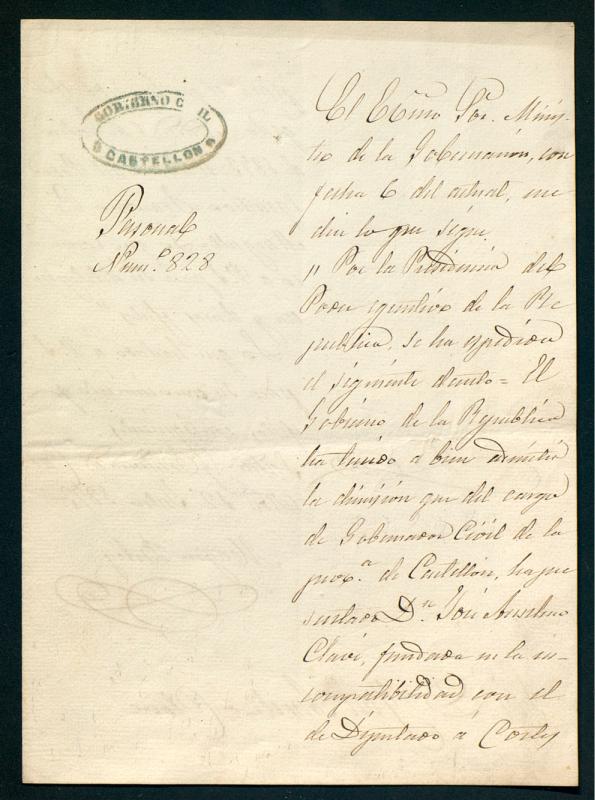 GOBIERNO CIVIL
CASTELLON
Personal
Num.º 828
El Excmo Sor. Minis-
tro de la Gobernación, con
fecha 6 del actual, me
dice lo que sigue.
" Por la Presidencia del
Poder egecutivo de la Re
publica, se ha espedido
el siguiente decreto = El
Gobierno de la Republica
ha tenido a bien admitir
la dimisión que del cargo
de Gobernador Civil de la
prov.ª de Castellon, ha pre
sentado Dn. José Anselmo
Clavé, fundada en la in-
compatibilidad con el
de Diputado á Cortes